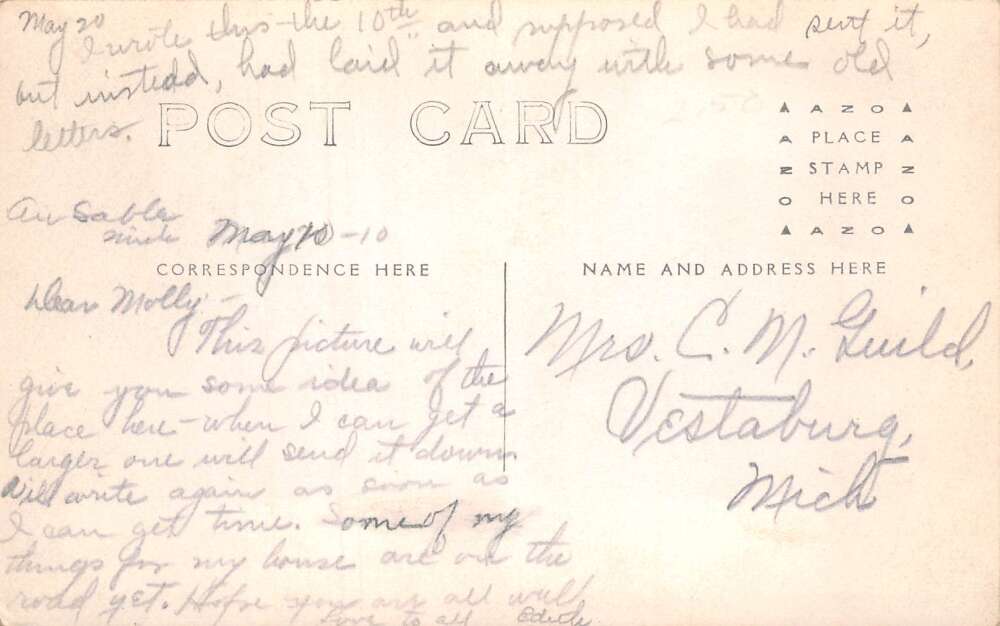 May 20
I wrote this the 10th and supposed I had sent it,
but instead, had laid it away with some old
letters.
POST CARD
AZO
PLACE
STAMP
HERE
AZO
Au Sable
Mich May 10-10
CORRESPONDENCE HERE
NAME AND ADDRESS HERE
Dear Molly-
This picture will
give you some idea of the
place here - when I can get a
larger one will send it down.
Will write again as soon as
I can get time. Some of my
things for my house are on the
road yet. Hope you are all well
Love to all Edith
Mrs. C. M. Guild,
Vestaburg,
Mich